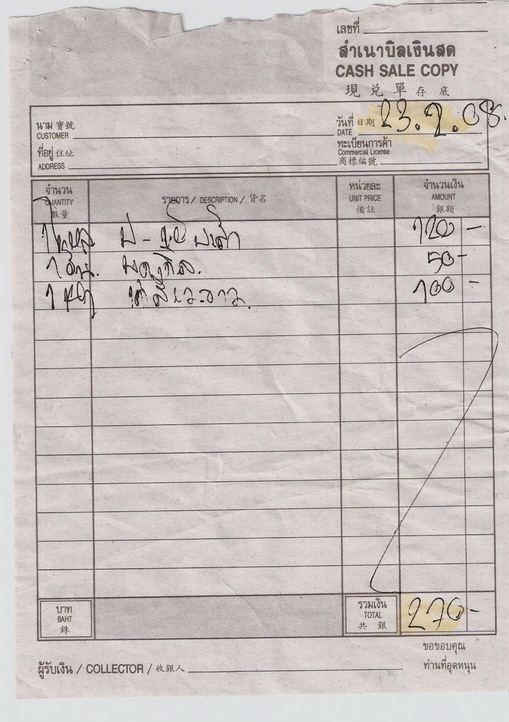 เลขที่
สำเนาบิลเงินสด
CASH SALE COPY
現兌單存底
นาม 寶號
CUSTOMER
วันที่ 日期 23.2.08.
DATE
ที่อยู่ 住址
ADDRESS
ทะเบียนการค้า
Commercial License
商標編號
จำนวน รายการ / DESCRIPTION / 貨名 หน่วยละ จำนวนเงิน
QUANTITY UNIT PRICE AMOUNT
數量 備註 銀額
1 120-
1 50-
1 100-
บาท รวมเงิน 270-
BAHT TOTAL
銖 共銀
ขอขอบคุณ
ผู้รับเงิน / COLLECTOR / 收銀人 ท่านที่อุดหนุน